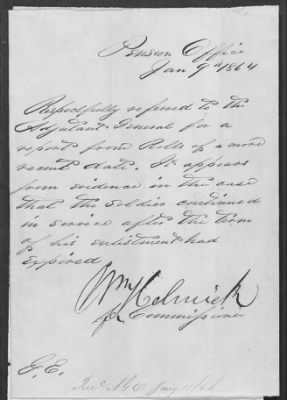 Pension Office
Jan 9th 1864
Respectfully referred to the
Adjutant General for a
report from Rolls of a more
recent date. It appears
from evidence in the case
that the soldier continued
in service after the term
of his enlistment had
expired
Wm Helmick
for Commissioner
G.E.
Rec. A.G.O. Jany 11/64